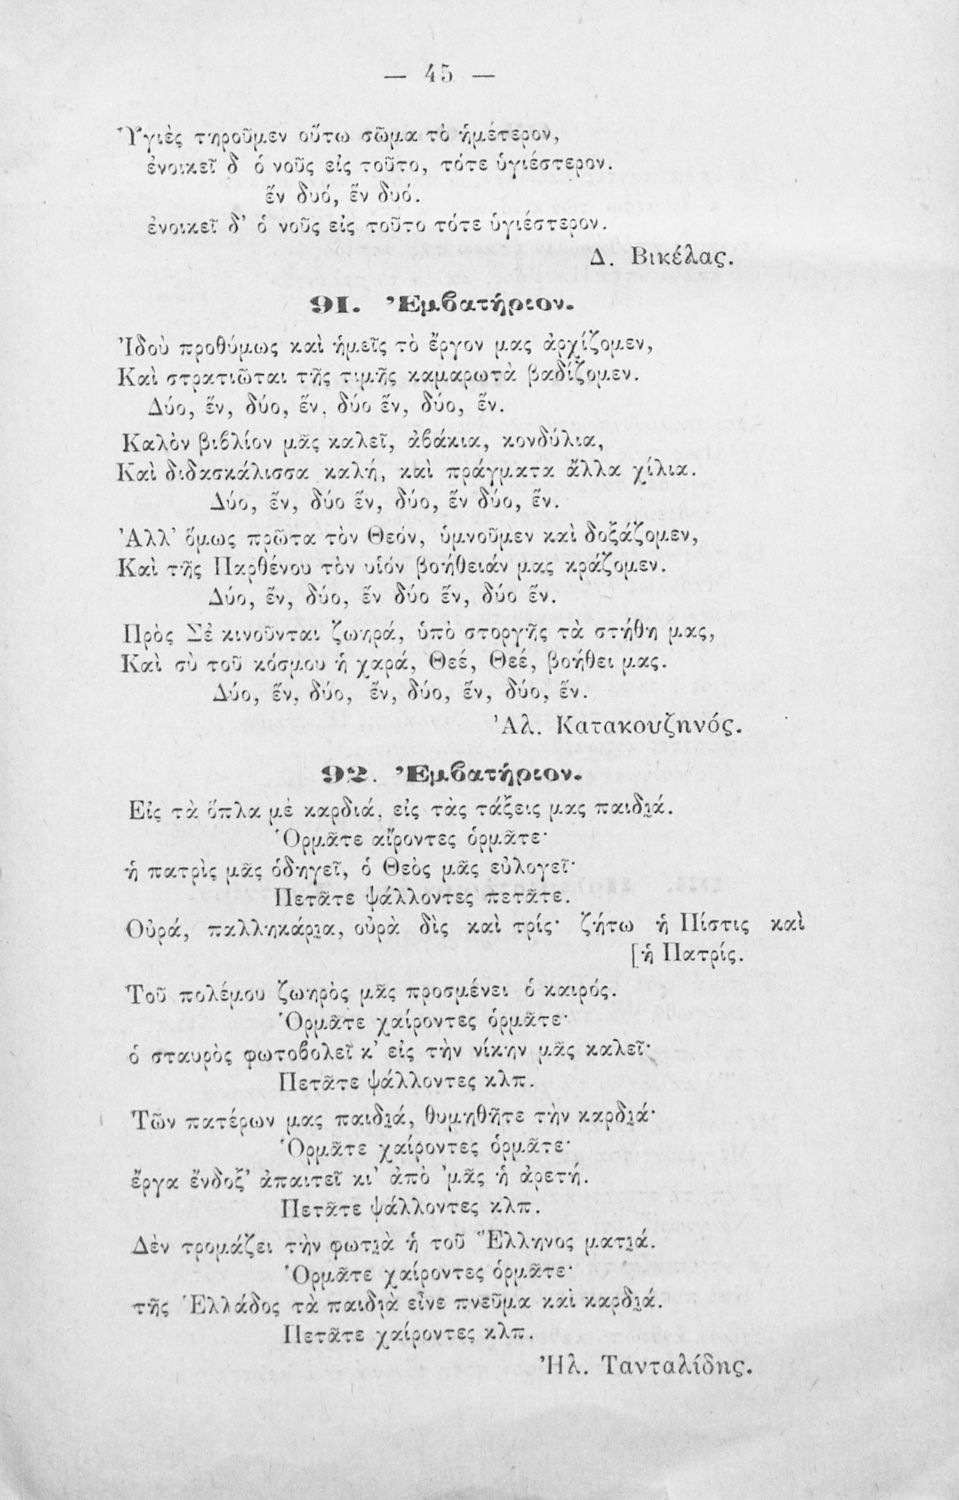 — 45 —
Ὑγιὲς τηροῦμεν οὕτω σῶμα τὸ ἡμέτερον,
ἐνοικεῖ δ ὁ νοῦς εἰς τοῦτο, τότε ὑγιέστερον.
ἕν δυό, ἕν δυό.
ἐνοικεῖ δ' ὁ νοῦς εἰς τοῦτο τότε ὑγιέστερον.
Δ. Βικέλας.
91. Ἐμβατήριον.
Ἰδοὺ προθύμως καὶ ἡμεῖς τὸ ἔργον μας ἀρχίζομεν,
Καὶ στρατιῶται τῆς τιμῆς καμαρωτὰ βαδίζομεν.
Δύο, ἕν, δύο, ἕν, δύο ἕν, δύο, ἕν.
Καλὸν βιβλίον μᾶς καλεῖ, ἀβάκια, κονδύλια,
Καὶ διδασκάλισσα καλή, καὶ πράγματα ἄλλα χίλια.
Δύο, ἕν, δύο ἕν, δύο, ἕν δύο, ἕν.
Ἀλλ' ὅμως πρῶτα τὸν Θεόν, ὑμνοῦμεν καὶ δοξάζομεν,
Καὶ τῆς Παρθένου τὸν υἱόν βοήθειάν μας κράζομεν.
Δύο, ἕν, δύο, ἕν δύο ἕν, δύο ἕν.
Πρὸς Σὲ κινοῦνται ζωηρά, ὑπὸ στοργῆς τὰ στήθη μας,
Καὶ σὺ τοῦ κόσμου ἡ χαρά, Θεέ, Θεέ, βοήθει μας.
Δύο, ἕν, δύο, ἕν, δύο, ἕν, δύο, ἕν.
Ἀλ. Κατακουζηνός.
92. Ἐμβατήριον.
Εἰς τὰ ὅπλα μὲ καρδιά, εἰς τὰς τάξεις μας παιδιά.
Ὁρμᾶτε αἴροντες ὁρμᾶτε·
ἡ πατρὶς μᾶς ὁδηγεῖ, ὁ Θεὸς μᾶς εὐλογεῖ·
Πετᾶτε ψάλλοντες πετᾶτε.
Οὐρά, παλληκάρια, οὐρὰ δὶς καὶ τρίς· ζήτω ἡ Πίστις καὶ
[ἡ Πατρίς.
Τοῦ πολέμου ζωηρὸς μᾶς προσμένει ὁ καιρός.
Ὁρμᾶτε χαίροντες ὁρμᾶτε·
ὁ σταυρὸς φωτοβολεῖ κ' εἰς τὴν νίκην μᾶς καλεῖ·
Πετᾶτε ψάλλοντες κλπ.
Τῶν πατέρων μας παιδιά, θυμηθῆτε τὴν καρδιά·
Ὁρμᾶτε χαίροντες ὁρμᾶτε·
ἔργα ἔνδοξ' ἀπαιτεῖ κι' ἀπὸ 'μᾶς ἡ ἀρετή.
Πετᾶτε ψάλλοντες κλπ.
Δὲν τρομάζει τὴν φωτιὰ ἡ τοῦ Ἕλληνος ματιά.
Ὁρμᾶτε χαίροντες ὁρμᾶτε·
τῆς Ἑλλάδος τὰ παιδιὰ εἶνε πνεῦμα καὶ καρδιά.
Πετᾶτε χαίροντες κλπ.
Ἠλ. Τανταλίδης.